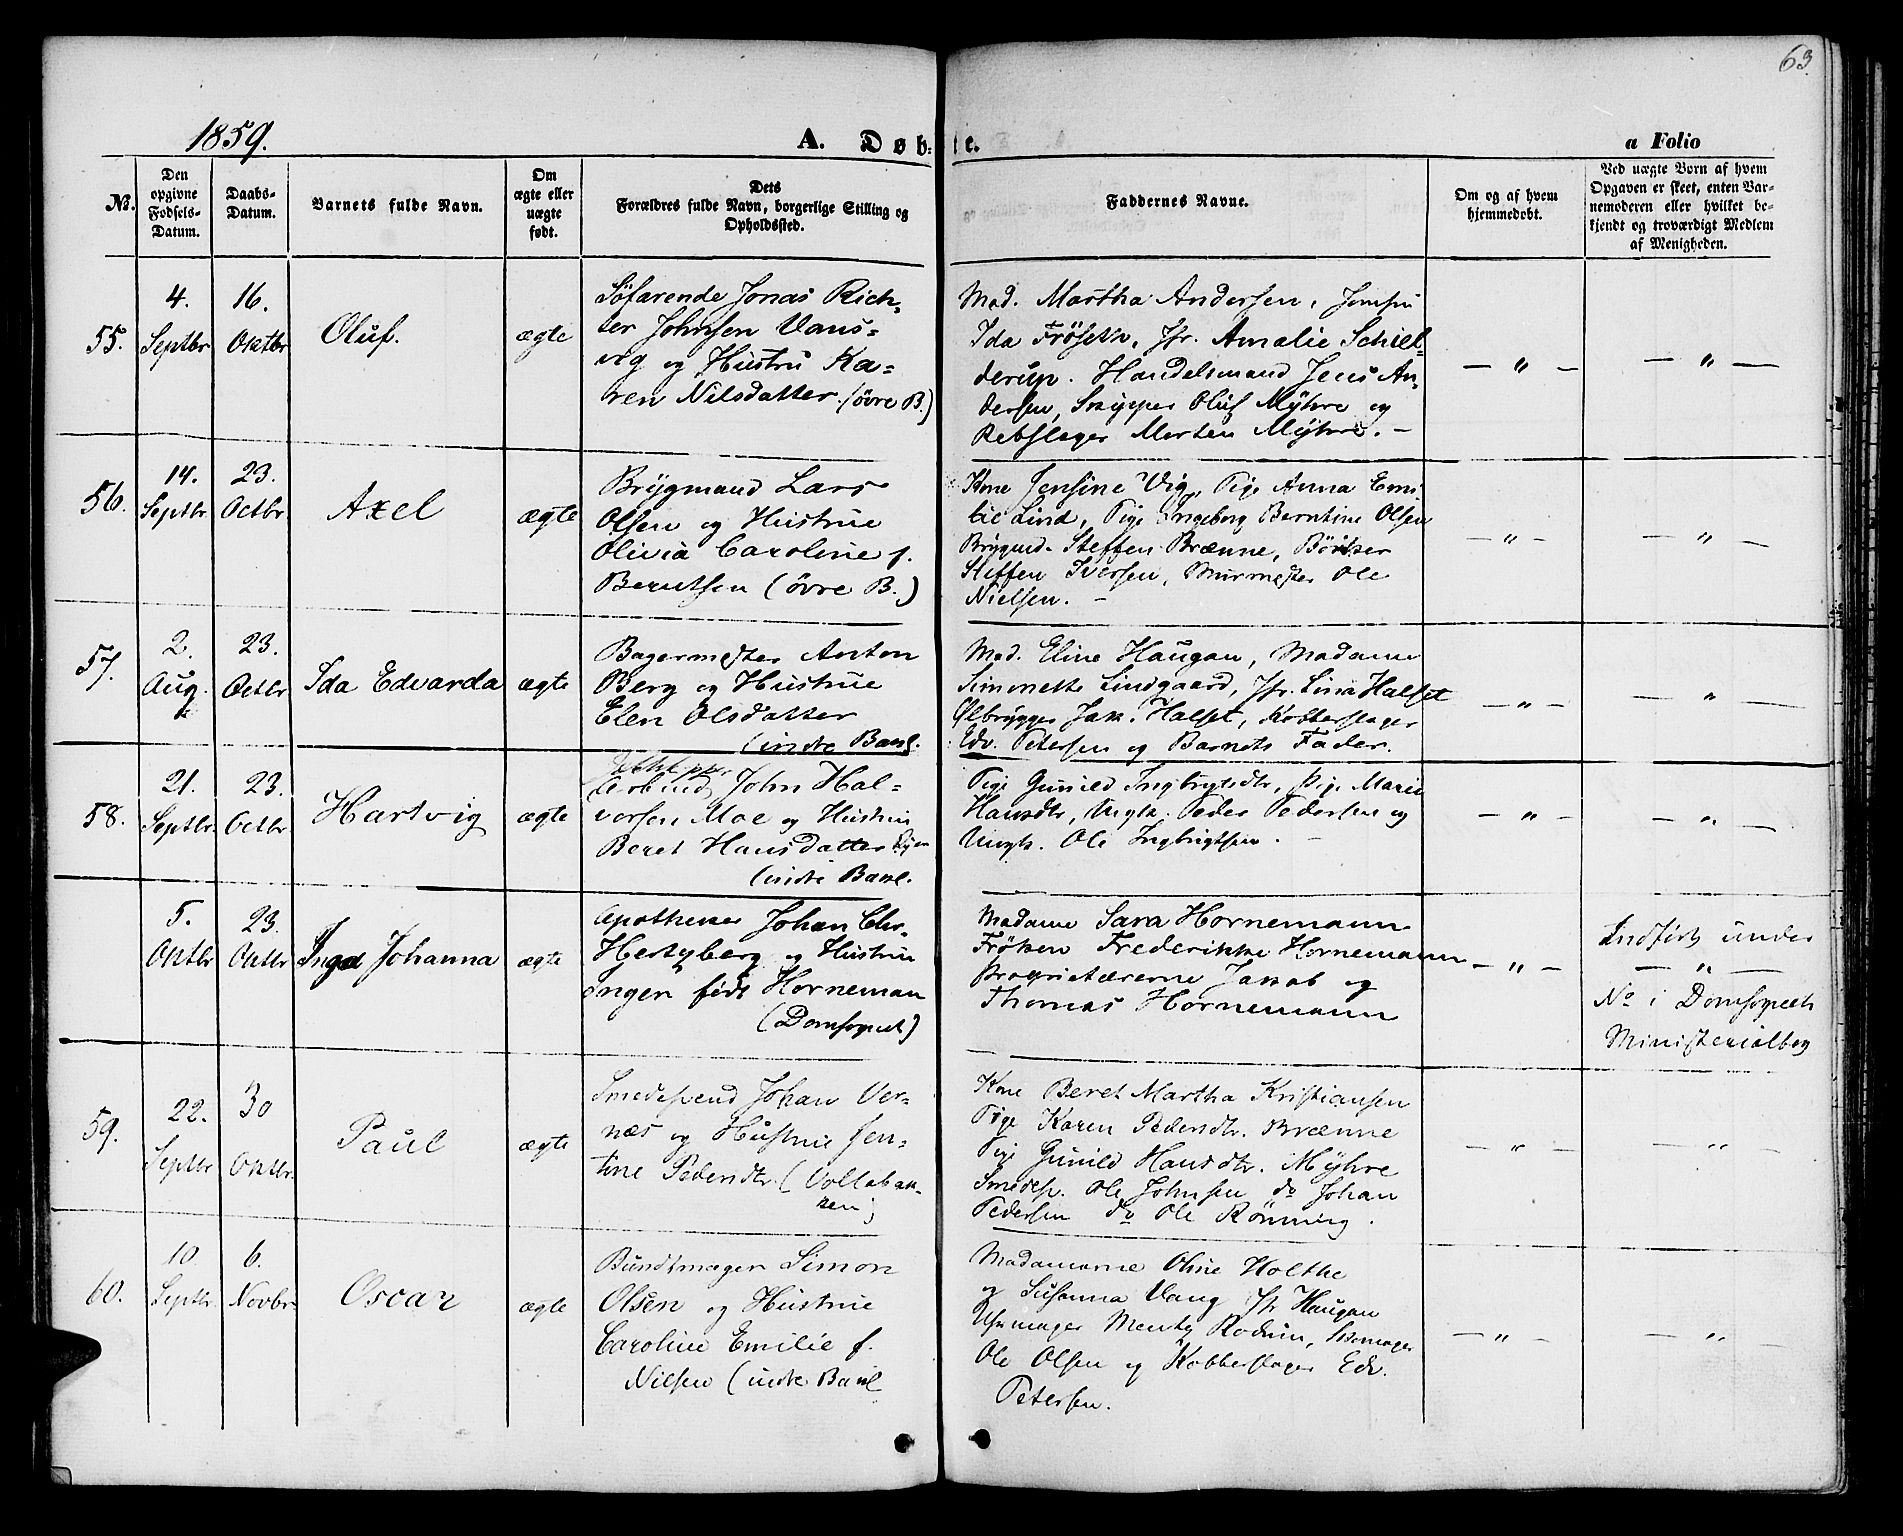 63.
1859. A. Døbte. a Folio
No. Den opgivne Fødsels-Datum. Daabs-Datum. Barnets fulde Navn. Om ægte eller uægte født. Dets Forældres fulde Navn, borgerlige Stilling og Opholdssted. Faddernes Navne. Om og af hvem hjemmedøbt. Ved uægte Born af hvem Opgaven er skeet, enten Barnemoderen eller hvilket bekjendt og troværdigt Medlem af Menigheden.
55. 4. Septbr 16. Oktbr Oluf. ægte
Söfarende Jonas Rich-
ter Johnsen Vans-
vig og Hustru Ka-
ren Nilsdatter. (övre B.)
Mad. Martha Andersen, Jomfru
Ida Fröseth, Jfr. Amalie Schiel-
derup. Handelsmand Jens An-
dersen, Skipper Oluf Myhre og
Rebslager Morten Myhre. -
— " — — " —
56. 14. Septbr. 23. Octbr. Axel ægte
Brygmand Lars
Olsen og Hustrue
Olivia Caroline f.
Berntsen (övre B.)
Kone Jensine Vig, Pige Anna Emi-
lie Lind, Pige Ingeborg Berntine Olsen
Brygmd. Steffen Brænne, Bödker
Steffen Iversen, Murmester Ole
Nielsen. -
— " — — " —
57. 2. Aug. 23. Octbr Ida Edvarda ægte
Bagermester Anton
Berg og Hustrue
Elen Olsdatter
(indre Bakl.
Mad. Eline Haugan, Madame
Simonette Lindgaard, Jfr. Lina Halset
Ølbrygger Jak. Halset, Kobberslager
Edv. Petersen og Barnets Fader.
— " — — " —
58. 21. Septbr. 23. Octbr Hartvig ægte
John Hal-
vorsen Moe og Hustru
Beret Hansdatter
(indre Bakl.
Pige Gunild Ingbrigtsdtr, Pige Marie
Hansdtr, Ungk. Peder Pedersen og
Ungk. Ole Ingbrigtsen. -
— " — — " —
5. Oktbr 23. Oktbr Inga Johanna ægte
Apotheker Johan Chr.
Hertzberg og Hustru
Inger född Horneman
(Domsognet)
Madame Sara Hornemann
Fröken Frederikke Hornemann
Proprietærerne Jakob og
Thomas Hornemann
— " —
Indfört under
— " —
No i Domsognets
Ministerialbog
59. 22. Septbr 30 Oktbr. Paul ægte
Smedesvend Johan Ver-
næs og Hustrue Jen-
tine Pedersdtr. (Vollabak-
ken)
Kone Beret Martha Kristiansen
Pige Karen Pedersdtr. Brænne
Pige Gunild Hansdtr. Myhre
Smedesv. Ole Johnsen do Johan
Pedersen do Ole Rönning.
— " — — " —
60. 10. Septbr. 6. Novbr. Oscar ægte
Bundtmager Simon
Olsen og Hustrue
Caroline Emilie f.
Nilsen (indre Bakl
Madamerne Oline Holthe
og Susanna Vang Jfr Haugan
Uhrmager Mentz Rodum, Skomager
Ole Olsen og Kobberslager Edv.
Petersen.
— " — — " —